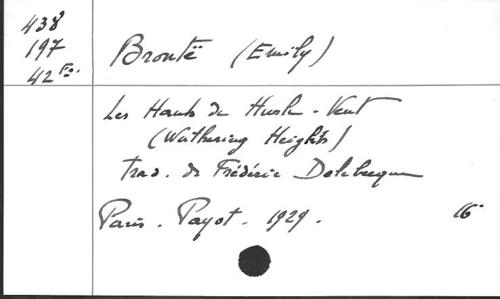 438
197
42 Fo.
Brontë (Emily)
Les Hauts de Hurle-Vent
(Wuthering Heights)
trad. de Frédéric Delebecque
Paris. Payot. 1929. 16°